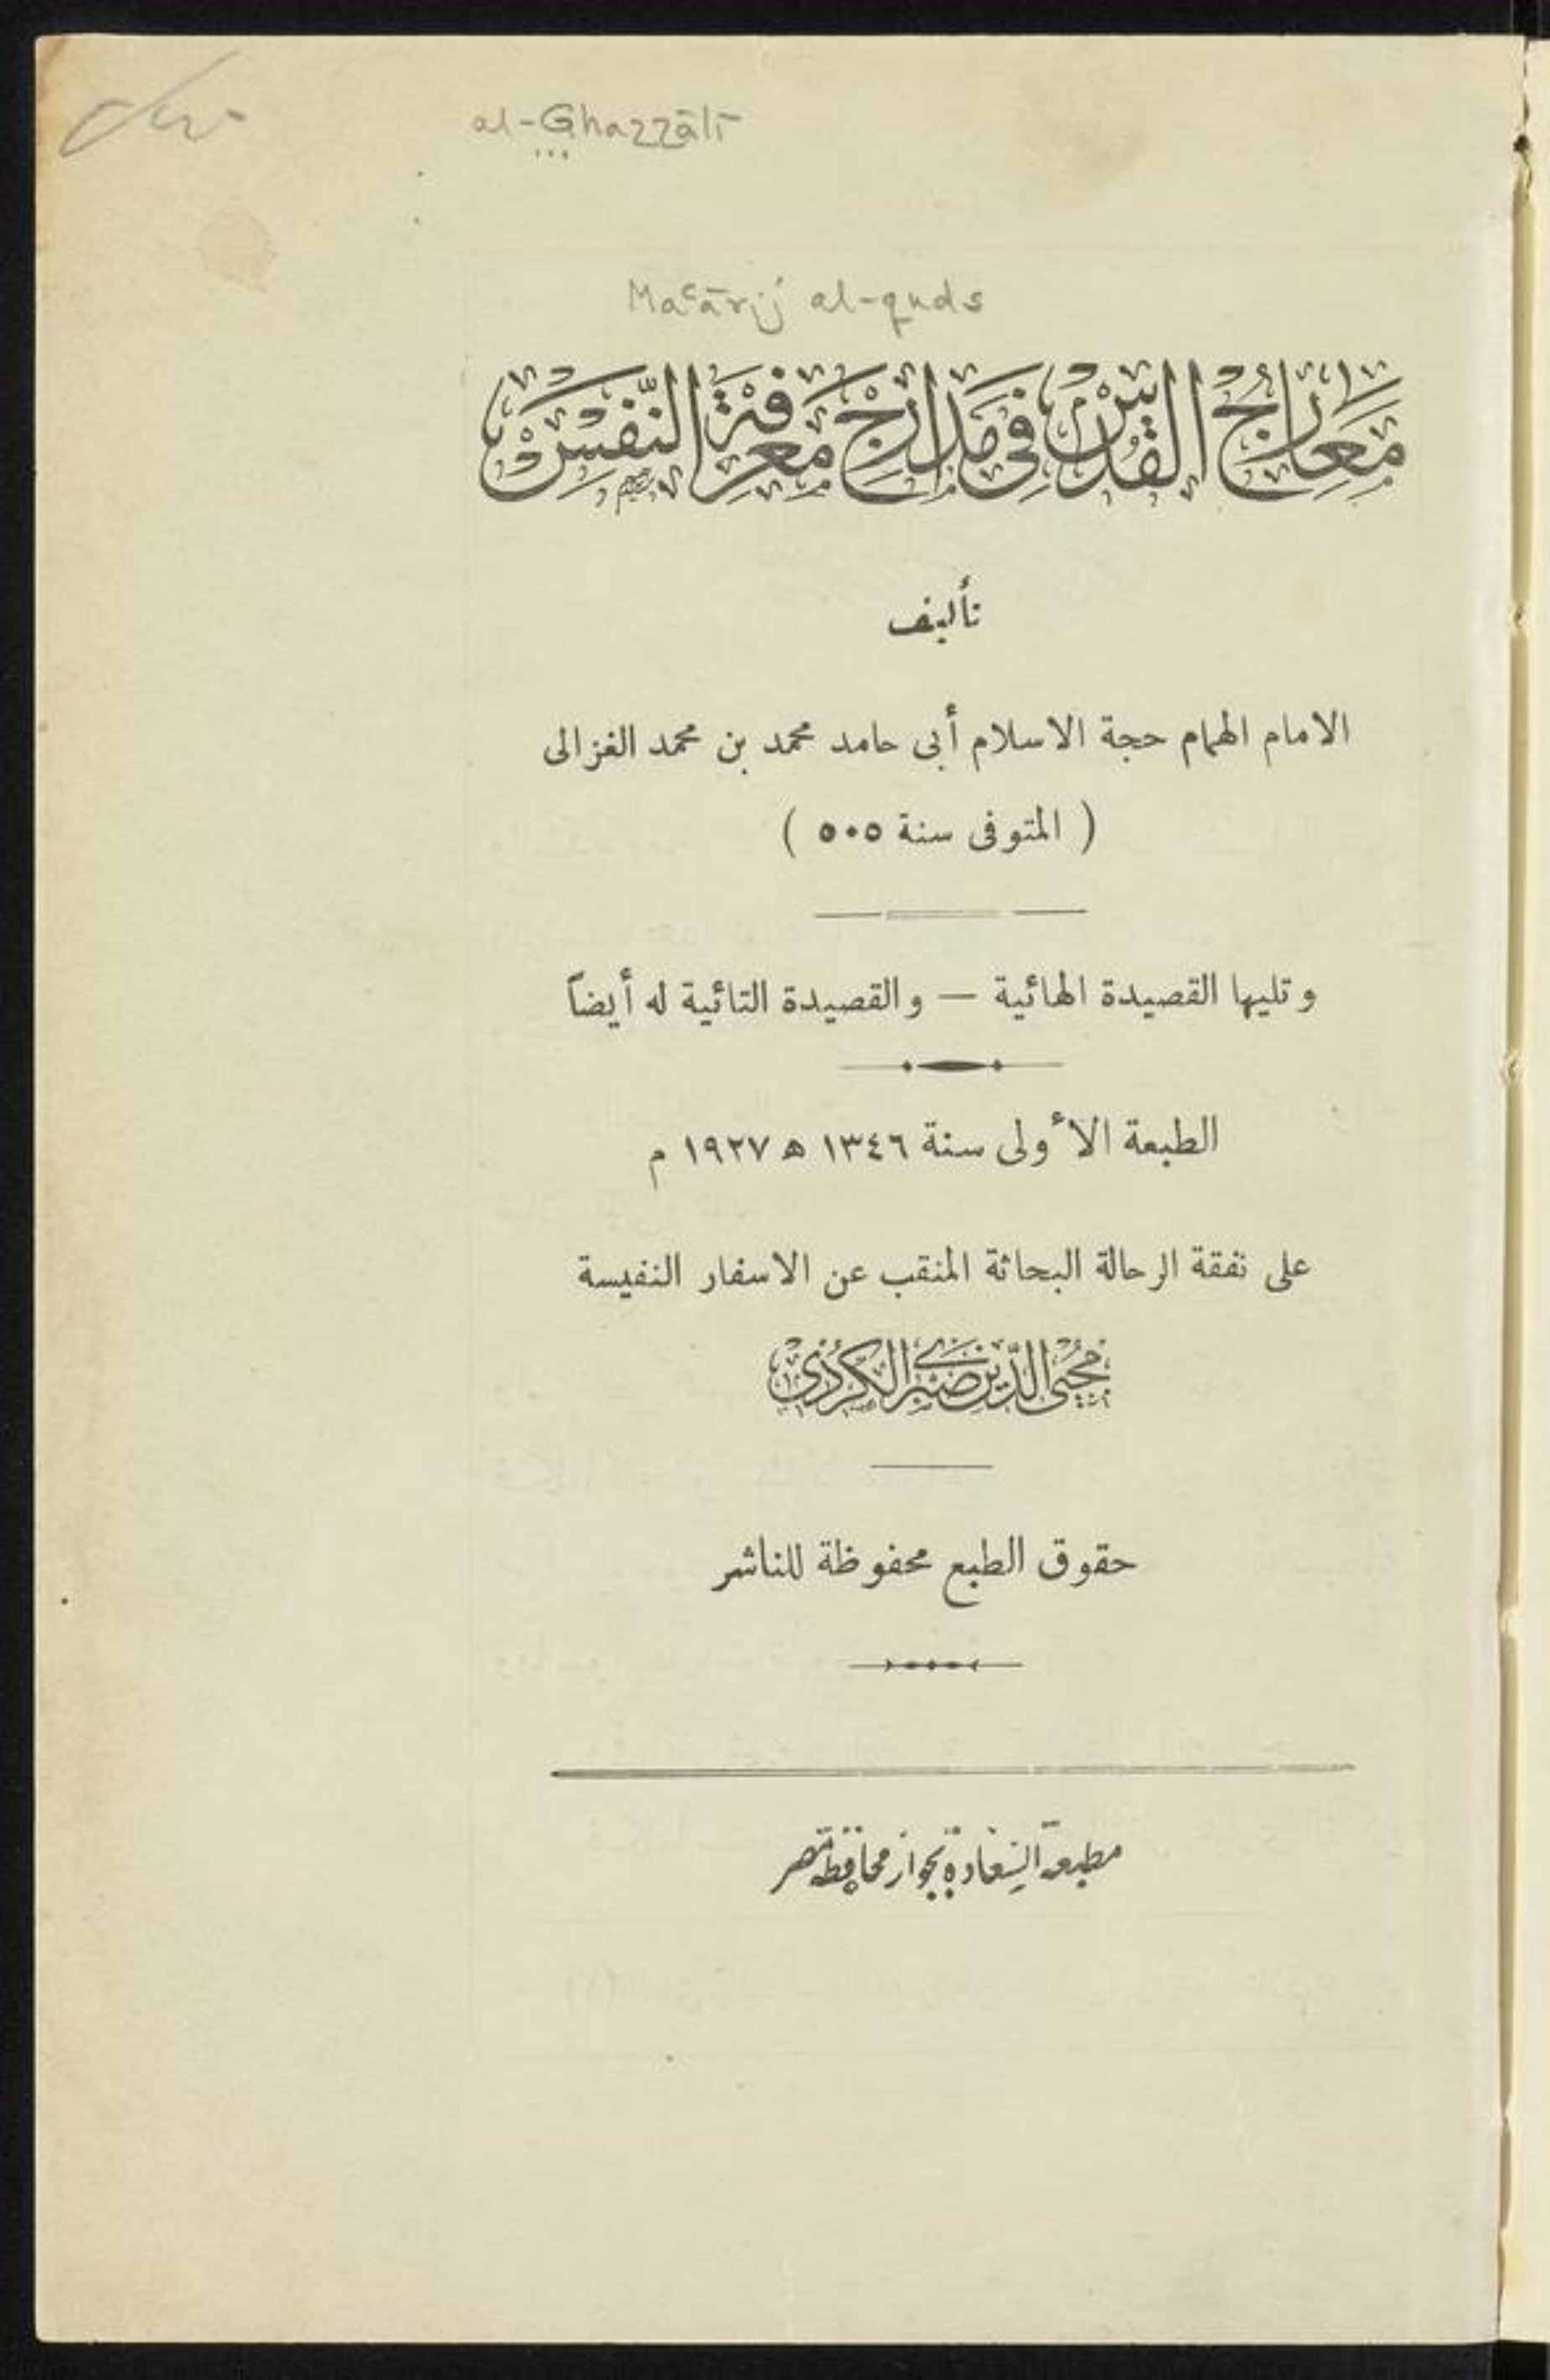 al-Ghazzālī
Maʿārij al-quds
مَعَارِجُ القُدْسِ فِي مَدَارِجِ مَعْرِفَةِ النَّفْسِ
تأليف
الامام الهمام حجة الاسلام أبى حامد محمد بن محمد الغزالى
( المتوفى سنة ٥٠٥ )
وتليها القصيدة الهائية — والقصيدة التائية له أيضاً
الطبعة الأولى سنة ١٣٤٦ ه ١٩٢٧ م
على نفقة الرحالة البحاثة المنقب عن الاسفار النفيسة
مُحْيِى الدِّين صَبْرِى الكُرْدِى
حقوق الطبع محفوظة للناشر
مطبعة السعادة بجوار محافظة مصر